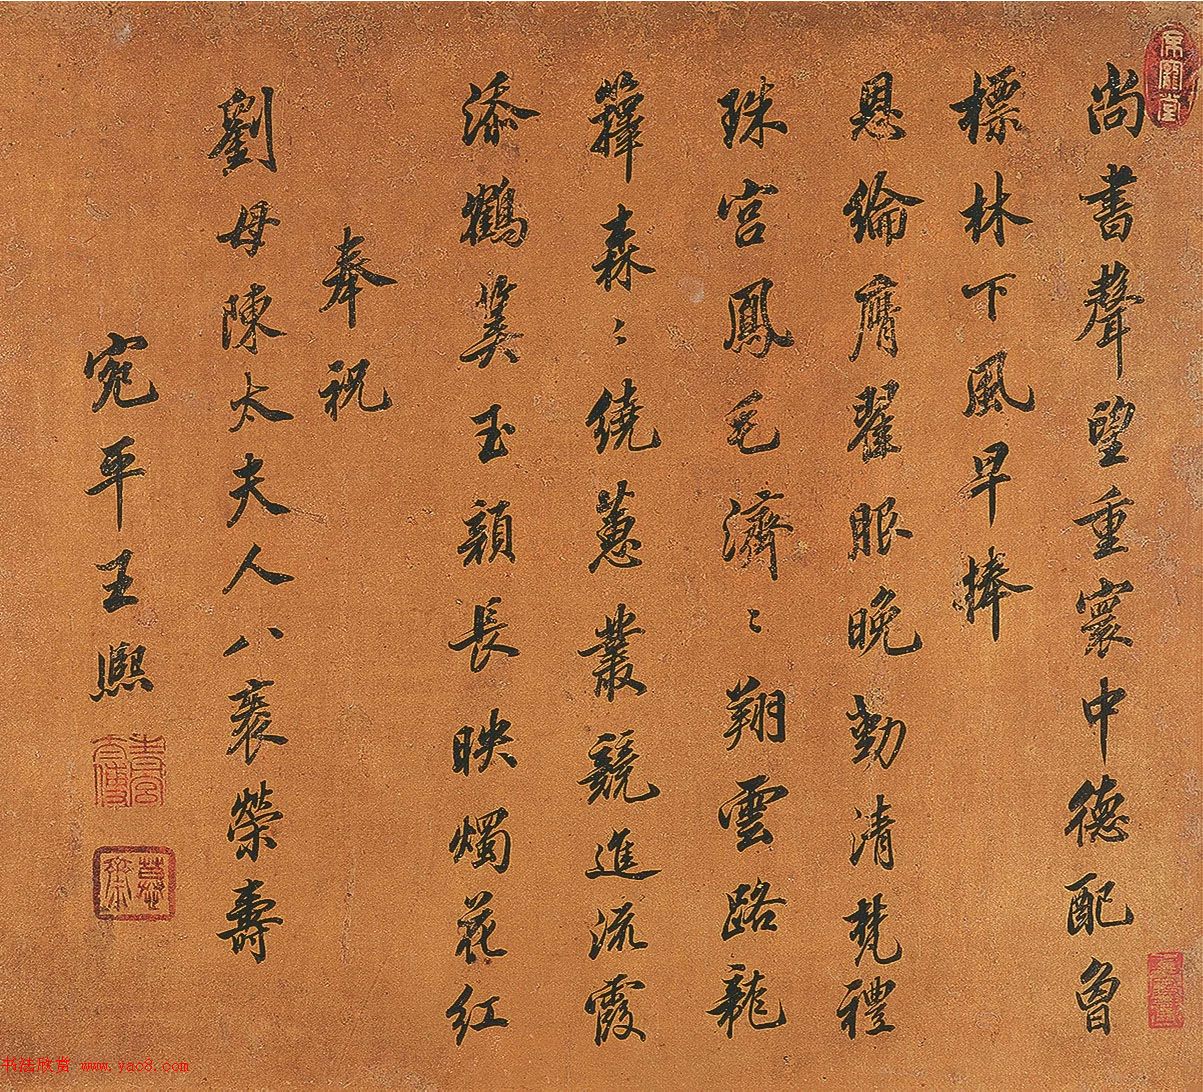 尚書聲望重寰中德配魯
標林下風早捧
恩綸膺翟服晚勤清梵禮
珠宮鳳毛濟〻翔雲路龍
籜森〻繞蕙叢競進流霞
添鶴筭玉顏長映燭花红
奉祝
劉母陳太夫人八袠榮壽
宛平王熙
席寵堂
慕齋
书法欣赏 www.yac8.com